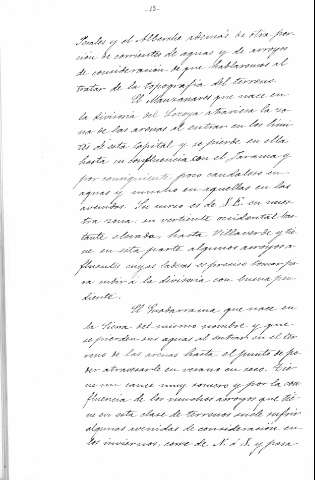 -13-
Perales y el Albardo además de otra por-
ción de corrientes de aguas y de arroyos
de consideración de que hablaremos al
tratar de la topografía del terreno.
El Manzanares que nace en
la divisoria del Lozoya atraviesa la zo-
na de las arenas al entrar en los lími-
tes de esta capital y se pierde en ella
hasta su confluencia con el Jarama y
por consiguiente poco caudaloso en
aguas y mucho en aquellas en las
avenidas. Su curso es de S.E. en nues-
tra zona su vertiente occidental bas-
tante elevada hasta Villaverde y tie-
ne en esta parte algunos arroyos a-
fluentes cuyas laderas es preciso tomar pa-
ra subir a la divisoria con buena pen-
diente.
El Guadarrama que nace en
la Sierra del mismo nombre y que
se pierden sus aguas al entrar en el ter-
reno de las arenas hasta el punto de po-
der atravesarle en verano en seco. Tie-
ne un cauce muy somero y por la con-
fluencia de los muchos arroyos que tie-
ne en esta clase de terrenos suele sufrir
algunas avenidas de consideración en
los inviernos, corre de N. á S. y pasa